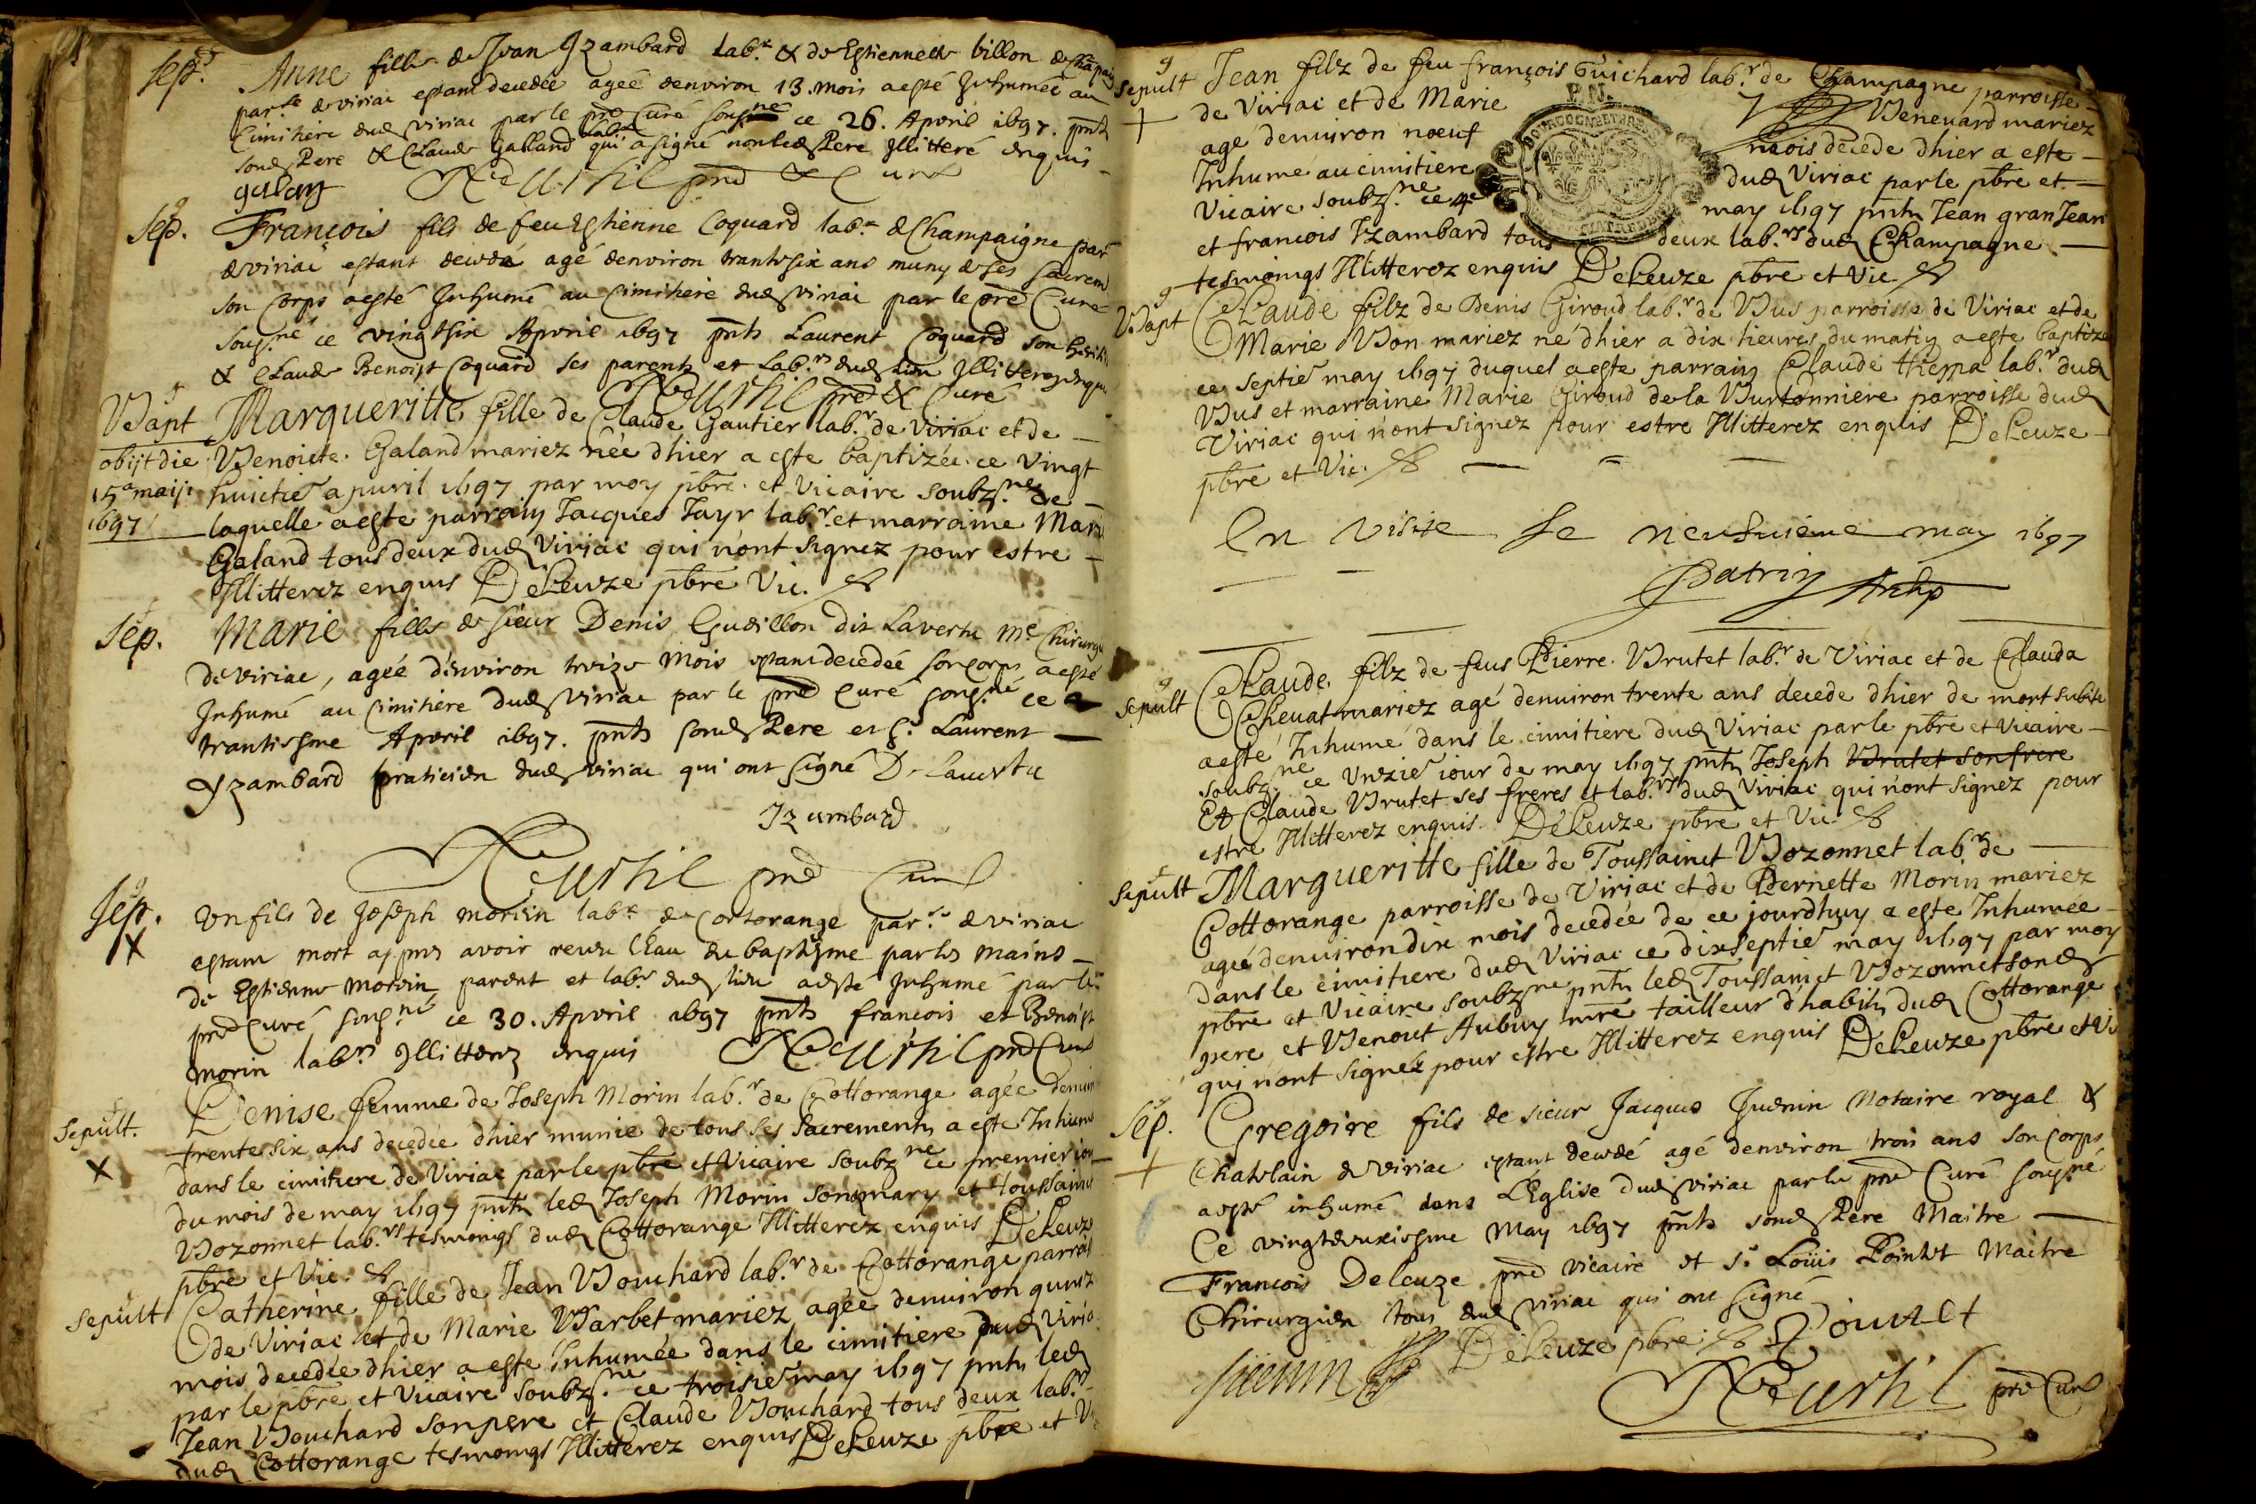 Sep.re Anne fille de Jean Yzambard lab.r & de Estiennette billon de Champaigne
par.sse de viriac estant decedée ageé denviron 13. mois a esté Inhumée au
Cimitiere dud viriac par le pre Curé sousné ce 26. Apvril 1697. pnts
sond Pere & Claude Galland qui a signé non led Pere Illitteré enquis
galan Reurthil pre & Curé
Sep. François fils de feu Estienne Coquard lab.r de Champaigne par
de viriac estant decedé agé denviron trante six ans muny de ses sacrem
son corps a esté Inhumé au Cimitiere dud viriac par le pre Curé
sous.né ce vingt six Apvril 1697 pnts Laurent Coquard son
& Claude Benoist Coquard ses parents et lab.rs dud lieu Illiterez enquis
Reurthil pre & Curé
Bapt Margueritte fille de Claude Gautier lab.r de Viriac et de
obijt die Benoite Galand mariez née dhier a este baptizée ce vingt
15a maij huictie apvril 1697 par moy pbre et Vicaire soubz.né de
1697 laquelle a este parrain Jacques Jayr lab.r et marraine Marie
Galand tous deux dud Viriac qui n'ont signez pour estre
Illitterez enquis DeLeuze pbre Vic.
Sep. Marie fille de sieur Denis Guillon dit Lavertu Me Chirurgien
de viriac, ageé d'environ treize mois estant decedeé son corps a esté
Inhumé au Cimitiere dud viriac par le pre Curé sous.né ce
trantiesme Apvril 1697. pnts sond Pere et s.r Laurent
Yzambard praticien dud viriac qui ont signé D. Lavertu
Izambard
Reurthil pre Curé
Sep. Un fils de Joseph morin lab.r de Cotorange par.sse de viriac
X estant mort appres avoir receu l'Eau du baptesme par les mains
de Estienne Morin parent et lab.r dud lieu a esté Inhumé par le
pre Curé sous.né ce 30. Apvril 1697 pnts francois et Benoist
morin lab.rs Illitterez enquis Reurthil pre Curé
Sepult. Denise femme de Joseph Morin lab.r de Cottorange agée denviron
X trente six ans decedée dhier munie de tous ses Sacrements a este Inhumé
dans le cimitiere de Viriac par le pbre et Vicaire soubz.né ce premier jour
du mois de may 1697 pnts led Joseph Morin son mary et toussainct
Bozonnet lab.rs tesmoings dud Cottorange Illitterez enquis DeLeuze
pbre et Vic.
Sepult Catherine fille de Jean Bouchard lab.r de Cottorange parroisse
de Viriac et de Marie Barbet mariez agée denviron quinze
mois decedée dhier a este Inhumée dans le cimitiere dud Viriac
par le pbre et Vicaire soubz.né ce troisie may 1697 pnts led
Jean Bouchard son pere et Claude Bouchard tous deux lab.rs
dud Cottorange tesmoings Illitterez enquis DeLeuze pbre et Vic
Sepult Jean filz de feu françois Guichard lab.r de Champagne parroisse
de Viriac et de Marie Benevard mariez
agé denviron noeuf mois decede dhier a este
Inhumé au cimitiere dud Viriac par le pbre et
Vicaire soubz.né ce 4e may 1697 pnts Jean gran Jean
et francois Yzambard tous deux lab.rs dud Champagne
tesmoings Illitterez enquis DeLeuze pbre et Vic.
Bapt Claude filz de Denis Giroud lab.r de Bus parroisse de Viriac et de
Marie Bon mariez né dhier a dix heures du matin a este baptizé
ce septie may 1697 duquel a este parrain Claude theppa lab.r dud
Bus et marraine Marie Giroud de la Burtonniere parroisse dud
Viriac qui n'ont signez pour estre Illitterez enquis DeLeuze
pbre et Vic.
En visite Le neufuieme may 1697
Patrin Archip
Sepult Claude filz de feus Pierre Brutet lab.r de Viriac et de Clauda
Chevat mariez agé denviron trente ans decede dhier de mort subite
a esté Inhumé dans le cimitiere dud Viriac par le pbre et Vicaire
soubz.né ce Unzie iour de may 1697 pnts Joseph Brutet son frere
Et Claude Brutet ses freres et lab.rs dud Viriac qui n'ont signez pour
estre Illitterez enquis. DeLeuze pbre et Vic.
Sepult Margueritte fille de Toussainct Bozonnet lab.r de
Cottorange parroisse de Viriac et de Pernette Morin mariez
agée denviron dix mois decedée de ce jourdhuy a este Inhumée
dans le cimitiere dud Viriac ce dixseptie may 1697 par moy
pbre et Vicaire soubz.né pnts led Toussainct Bozonnet sond
pere et Benoict Aubuy mre tailleur d'habits dud Cottorange
qui n'ont signez pour estre Illitterez enquis DeLeuze pbre et Vi
Sep. Gregoire fils de sieur Jacques Juenin Notaire royal &
Chatelain de viriac estant decedé agé denviron trois ans son corps
a esté inhumé dans L'Eglise dud viriac par le pre Curé sous.né
Ce vingtdeuxiesme May 1697 pnts sond Pere Maitre
François Deleuze pre vicaire et s.r Loüis Pointet Maitre
Chirurgien tous dud viriac qui ont signé
Juenin DeLeuze pbre Pointet
Reurthil pre Curé